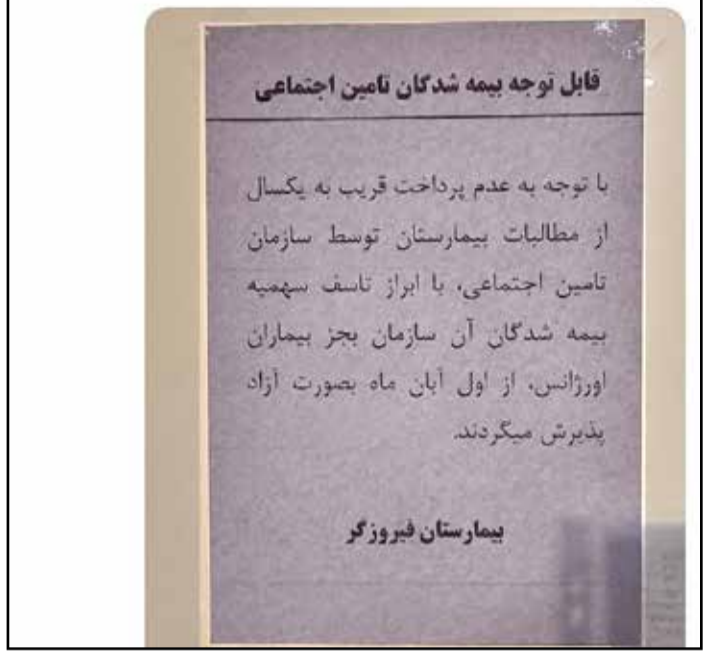 قابل توجه بیمه شدگان تامین اجتماعی
با توجه به عدم پرداخت قریب به یکسال
از مطالبات بیمارستان توسط سازمان
تامین اجتماعی، با ابراز تاسف سهمیه
بیمه شدگان آن سازمان بجز بیماران
اورژانس، از اول آبان ماه بصورت آزاد
پذیرش میگردند.
بیمارستان فیروزگر